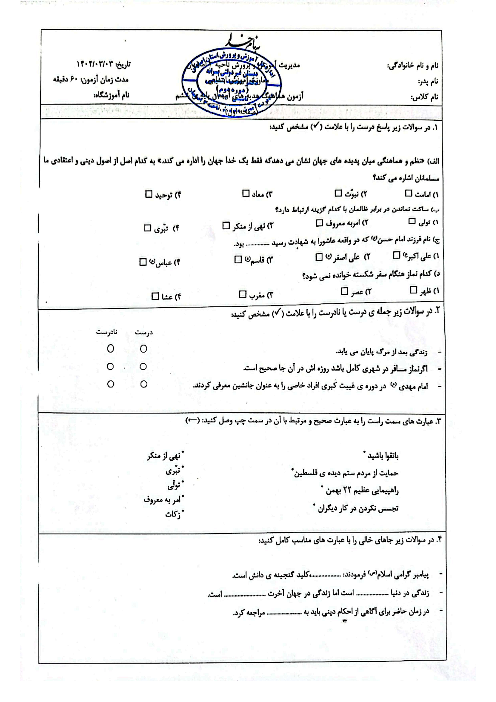 نام و نام خانوادگی:
مدیریت آموزش و پرورش ناحیه
تاریخ: ۱۴۰۲/۰۲/۰۳
نام پدر:
مدت زمان آزمون: ۶۰ دقیقه
نام کلاس:
آزمون هماهنگ هدیه های آسمان پایه ششم
نام آموزشگاه:
۱. در سوالات زیر پاسخ درست را با علامت (✓) مشخص کنید:
الف) «نظم و هماهنگی میان پدیده های جهان نشان می دهدکه فقط یک خدا جهان را اداره می کند.» به کدام اصل از اصول دینی و اعتقادی ما
مسلمانان اشاره می کند؟
۱) امامت □ ۲) نبوّت □ ۳) معاد □ ۴) توحید □
ب) ساکت نماندن در برابر ظالمان با کدام گزینه ارتباط دارد؟
۱) تولی □ ۲) امربه معروف □ ۳) نهی از منکر □ ۴) تبّری □
ج) نام فرزند امام حسن(ع) که در واقعه عاشورا به شهادت رسید .......... بود.
۱) علی اکبر(ع) □ ۲) علی اصغر(ع) □ ۳) قاسم(ع) □ ۴) عباس(ع) □
د) کدام نماز هنگام سفر شکسته خوانده نمی شود؟
۱) ظهر □ ۲) عصر □ ۳) مغرب □ ۴) عشا □
۲. در سوالات زیر جمله ی درست یا نادرست را با علامت (✓) مشخص کنید:
درست نادرست
- زندگی بعد از مرگ پایان می یابد. ○ ○
- اگرنماز مسافر در شهری کامل باشد روزه اش در آن جا صحیح است. ○ ○
- امام مهدی (ع) در دوره ی غیبت کبری افراد خاصی را به عنوان جانشین معرفی کردند. ○ ○
۳. عبارت های سمت راست را به عبارت صحیح و مرتبط با آن در سمت چپ وصل کنید: (←)
باتقوا باشید * * نهی از منکر
حمایت از مردم ستم دیده ی فلسطین * * تبّری
راهپیمایی عظیم ۲۲ بهمن * * تولّی
تجسس نکردن در کار دیگران * * امر به معروف
* زکات
۴. در سوالات زیر جاهای خالی را با عبارت های مناسب کامل کنید:
- پیامبر گرامی اسلام(ص) فرمودند: ..............کلید گنجینه ی دانش است.
- زندگی در دنیا .............. است اما زندگی در جهان آخرت .............. است.
- در زمان حاضر برای آگاهی از احکام دینی باید به .............. مراجعه کرد.